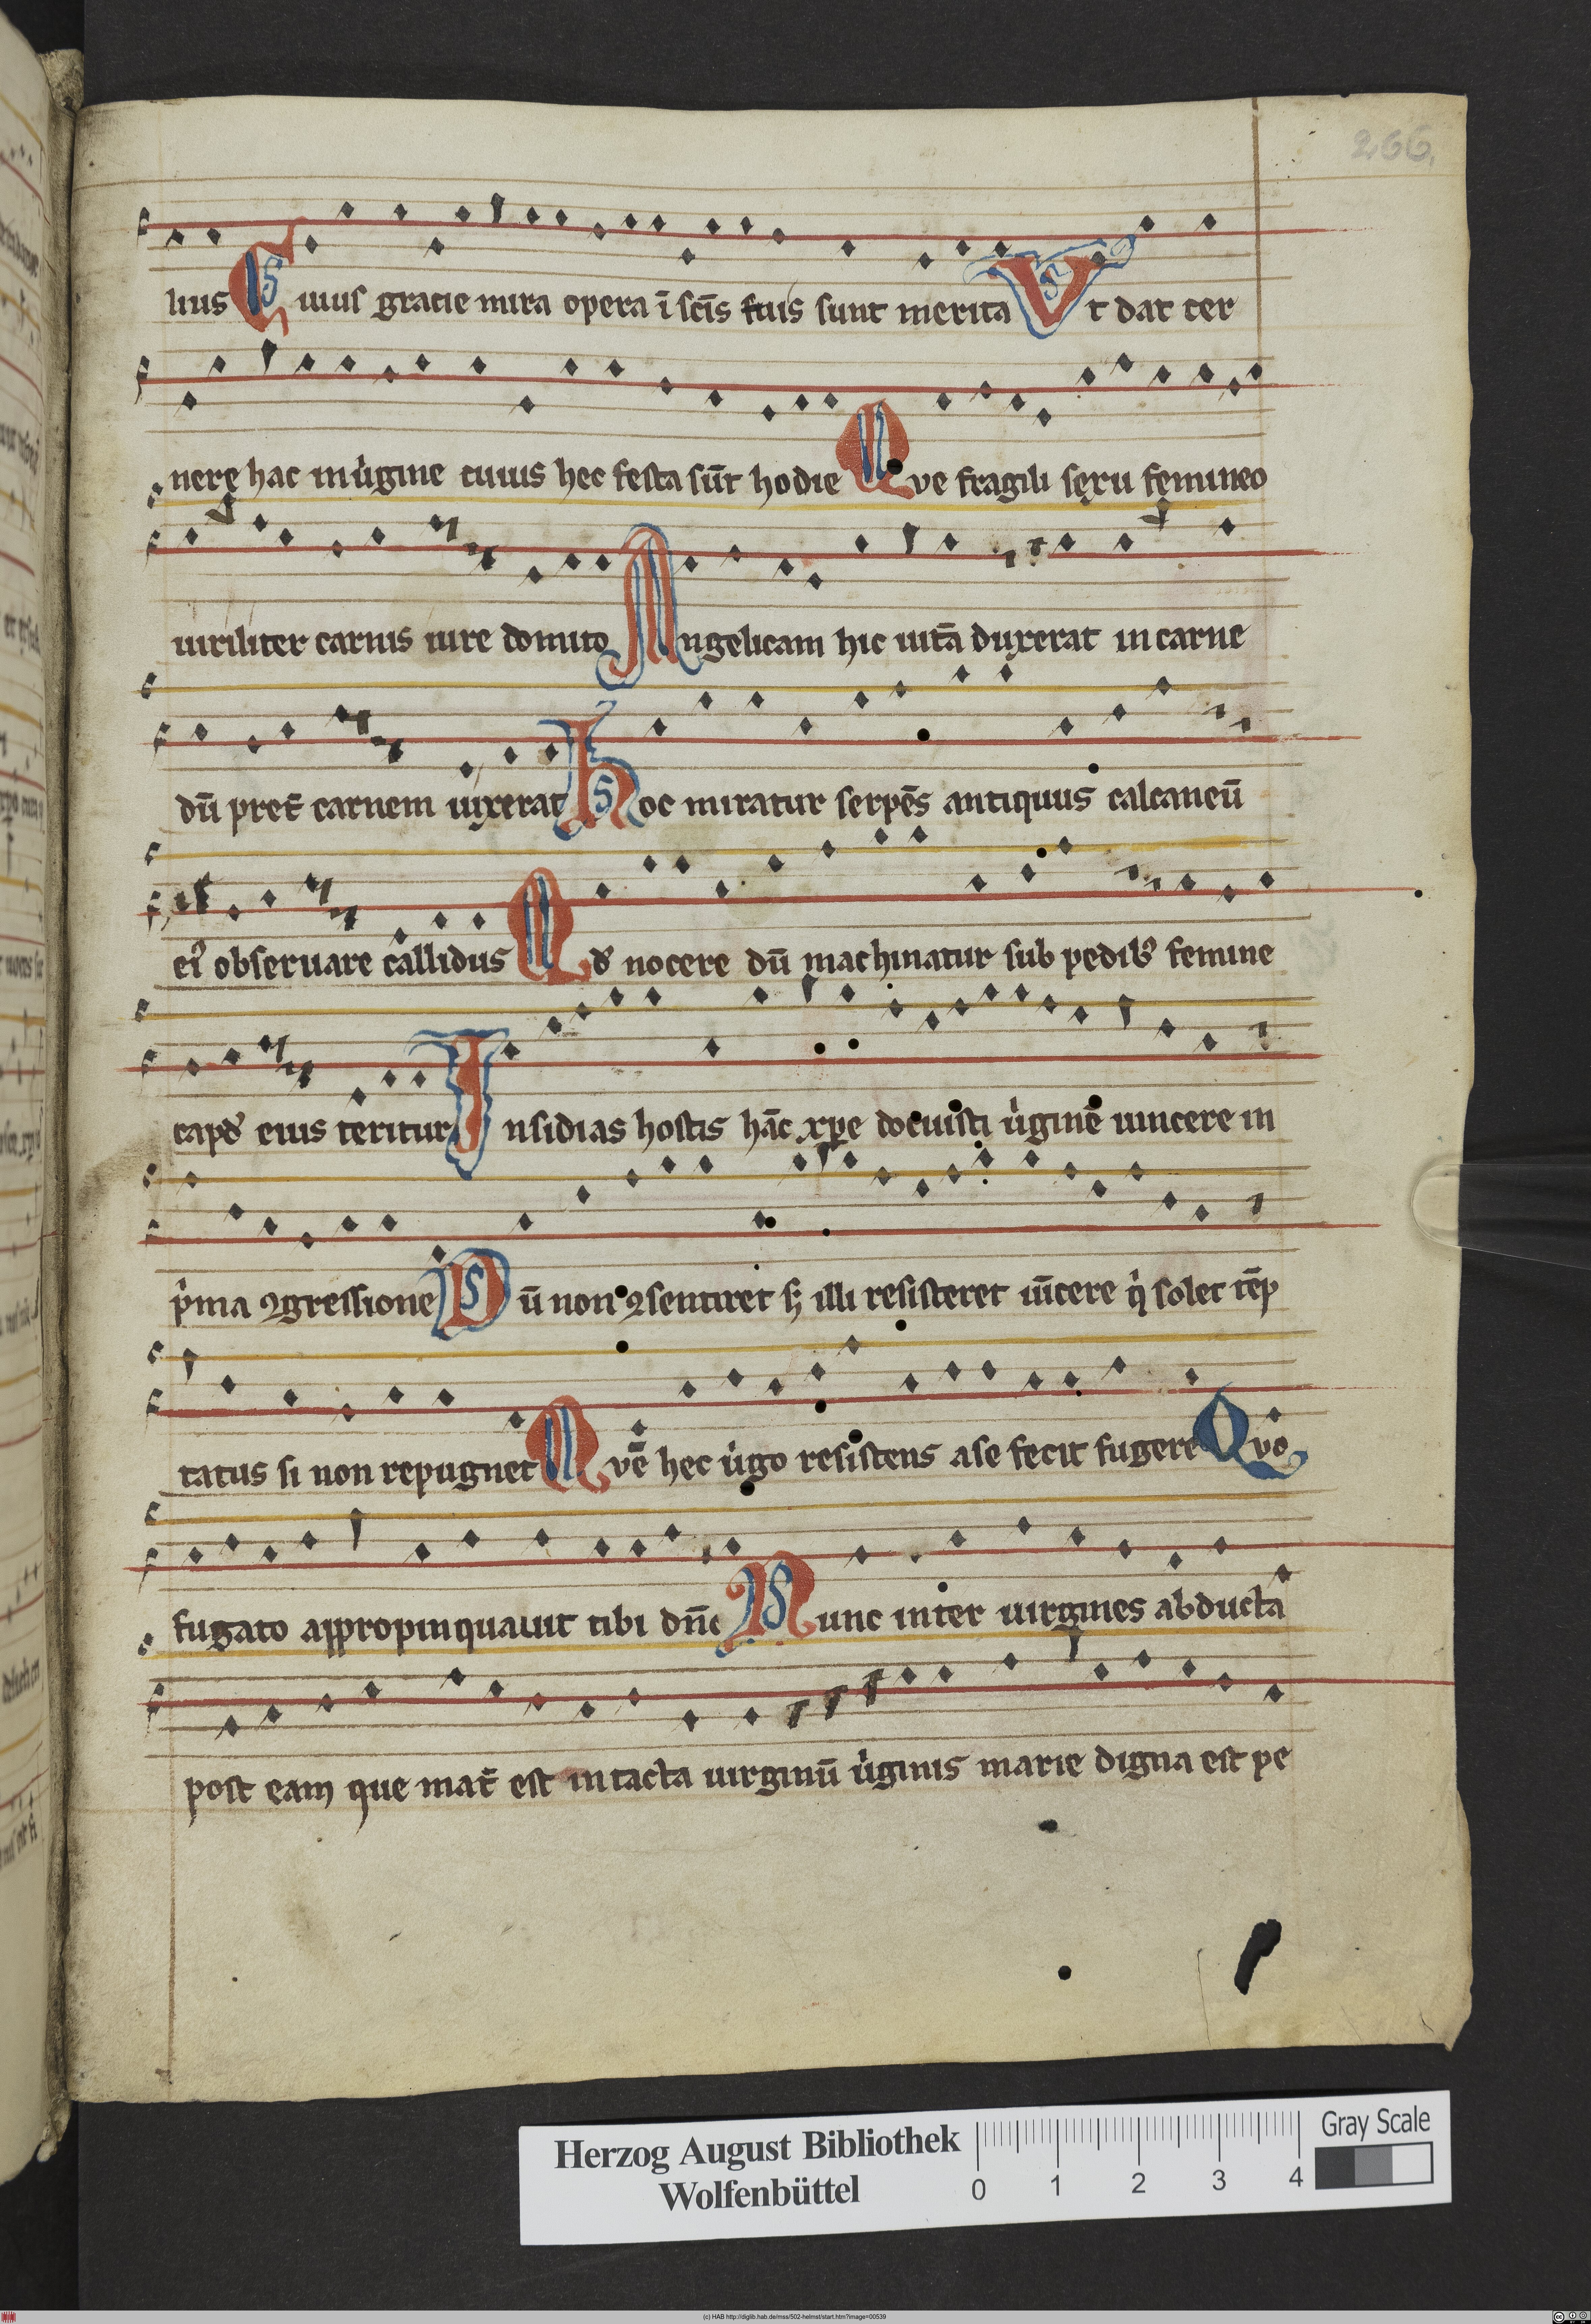 266.
lius Cuius gracie mira opera ī scīs suis sunt merita Vt dat ter
nere hac in uͥgine cuius hec festa sūt hodie Que fragili sexu femineo
uiriliter carnis iure domito Angelicam hic uitā duxerat in carne
dū pret̄ carnem uixerat Hoc miratur serpēs antiquus calcaneū
eiꝰ obseruare callidus Qd' nocere dū machinatur sub pedibꝰ femine
capd' eius teritur Insidias hostis hāc xp̄e docuisti uͥginē uincere in
pͥma ꝯgressione Dū non ꝯsentiret sꝫ illi resisteret uīcere qͥ solet tēp
tatus si non repugnet Quē hec uͥgo resistens a se fecit fugere Quo
fugato appropinquauit tibi dn̄e Nunc inter uirgines abducta
post eam que mat̄ est intacta uirginū uͥginis marie digna est pe
Herzog August Bibliothek
Wolfenbüttel
0 1 2 3 4
Gray Scale
(c) HAB http://diglib.hab.de/mss/502-helmst/start.htm?image=00539